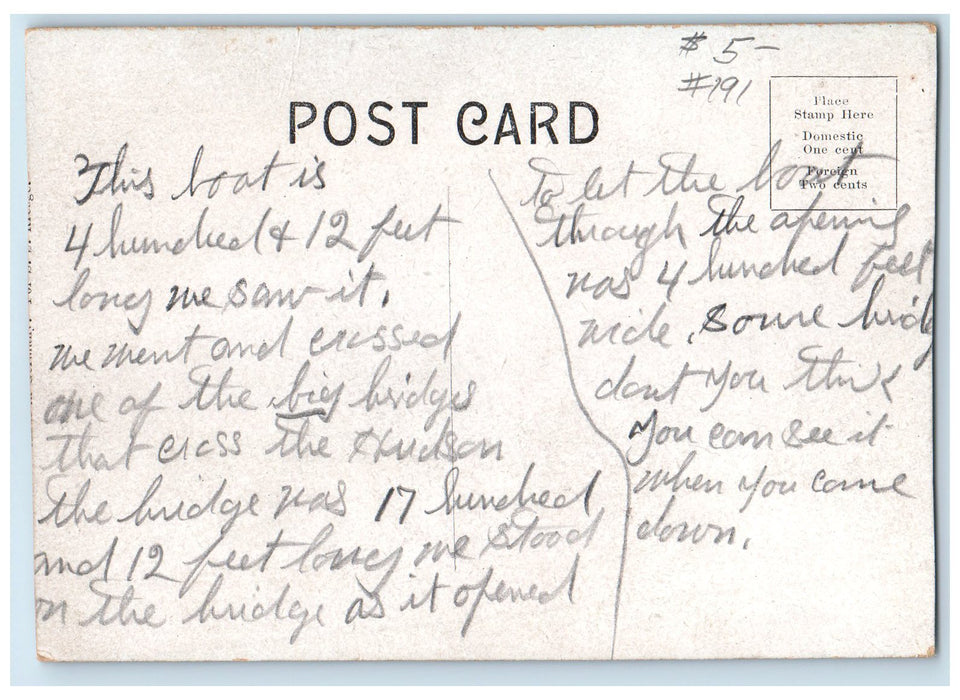 # 5-
#191
POST CARD
Place
Stamp Here
Domestic
One cent
Foreign
Two cents
This boat is
4 hundred & 12 feet
long we saw it.
we went and crossed
one of the big bridges
that cross the Hudson
the bridge was 17 hundred
and 12 feet long we stood
on the bridge as it opened
to let the boat
through the opening
was 4 hundred feet
wide. Some bridg
dont you think
you can see it
when you come
down.